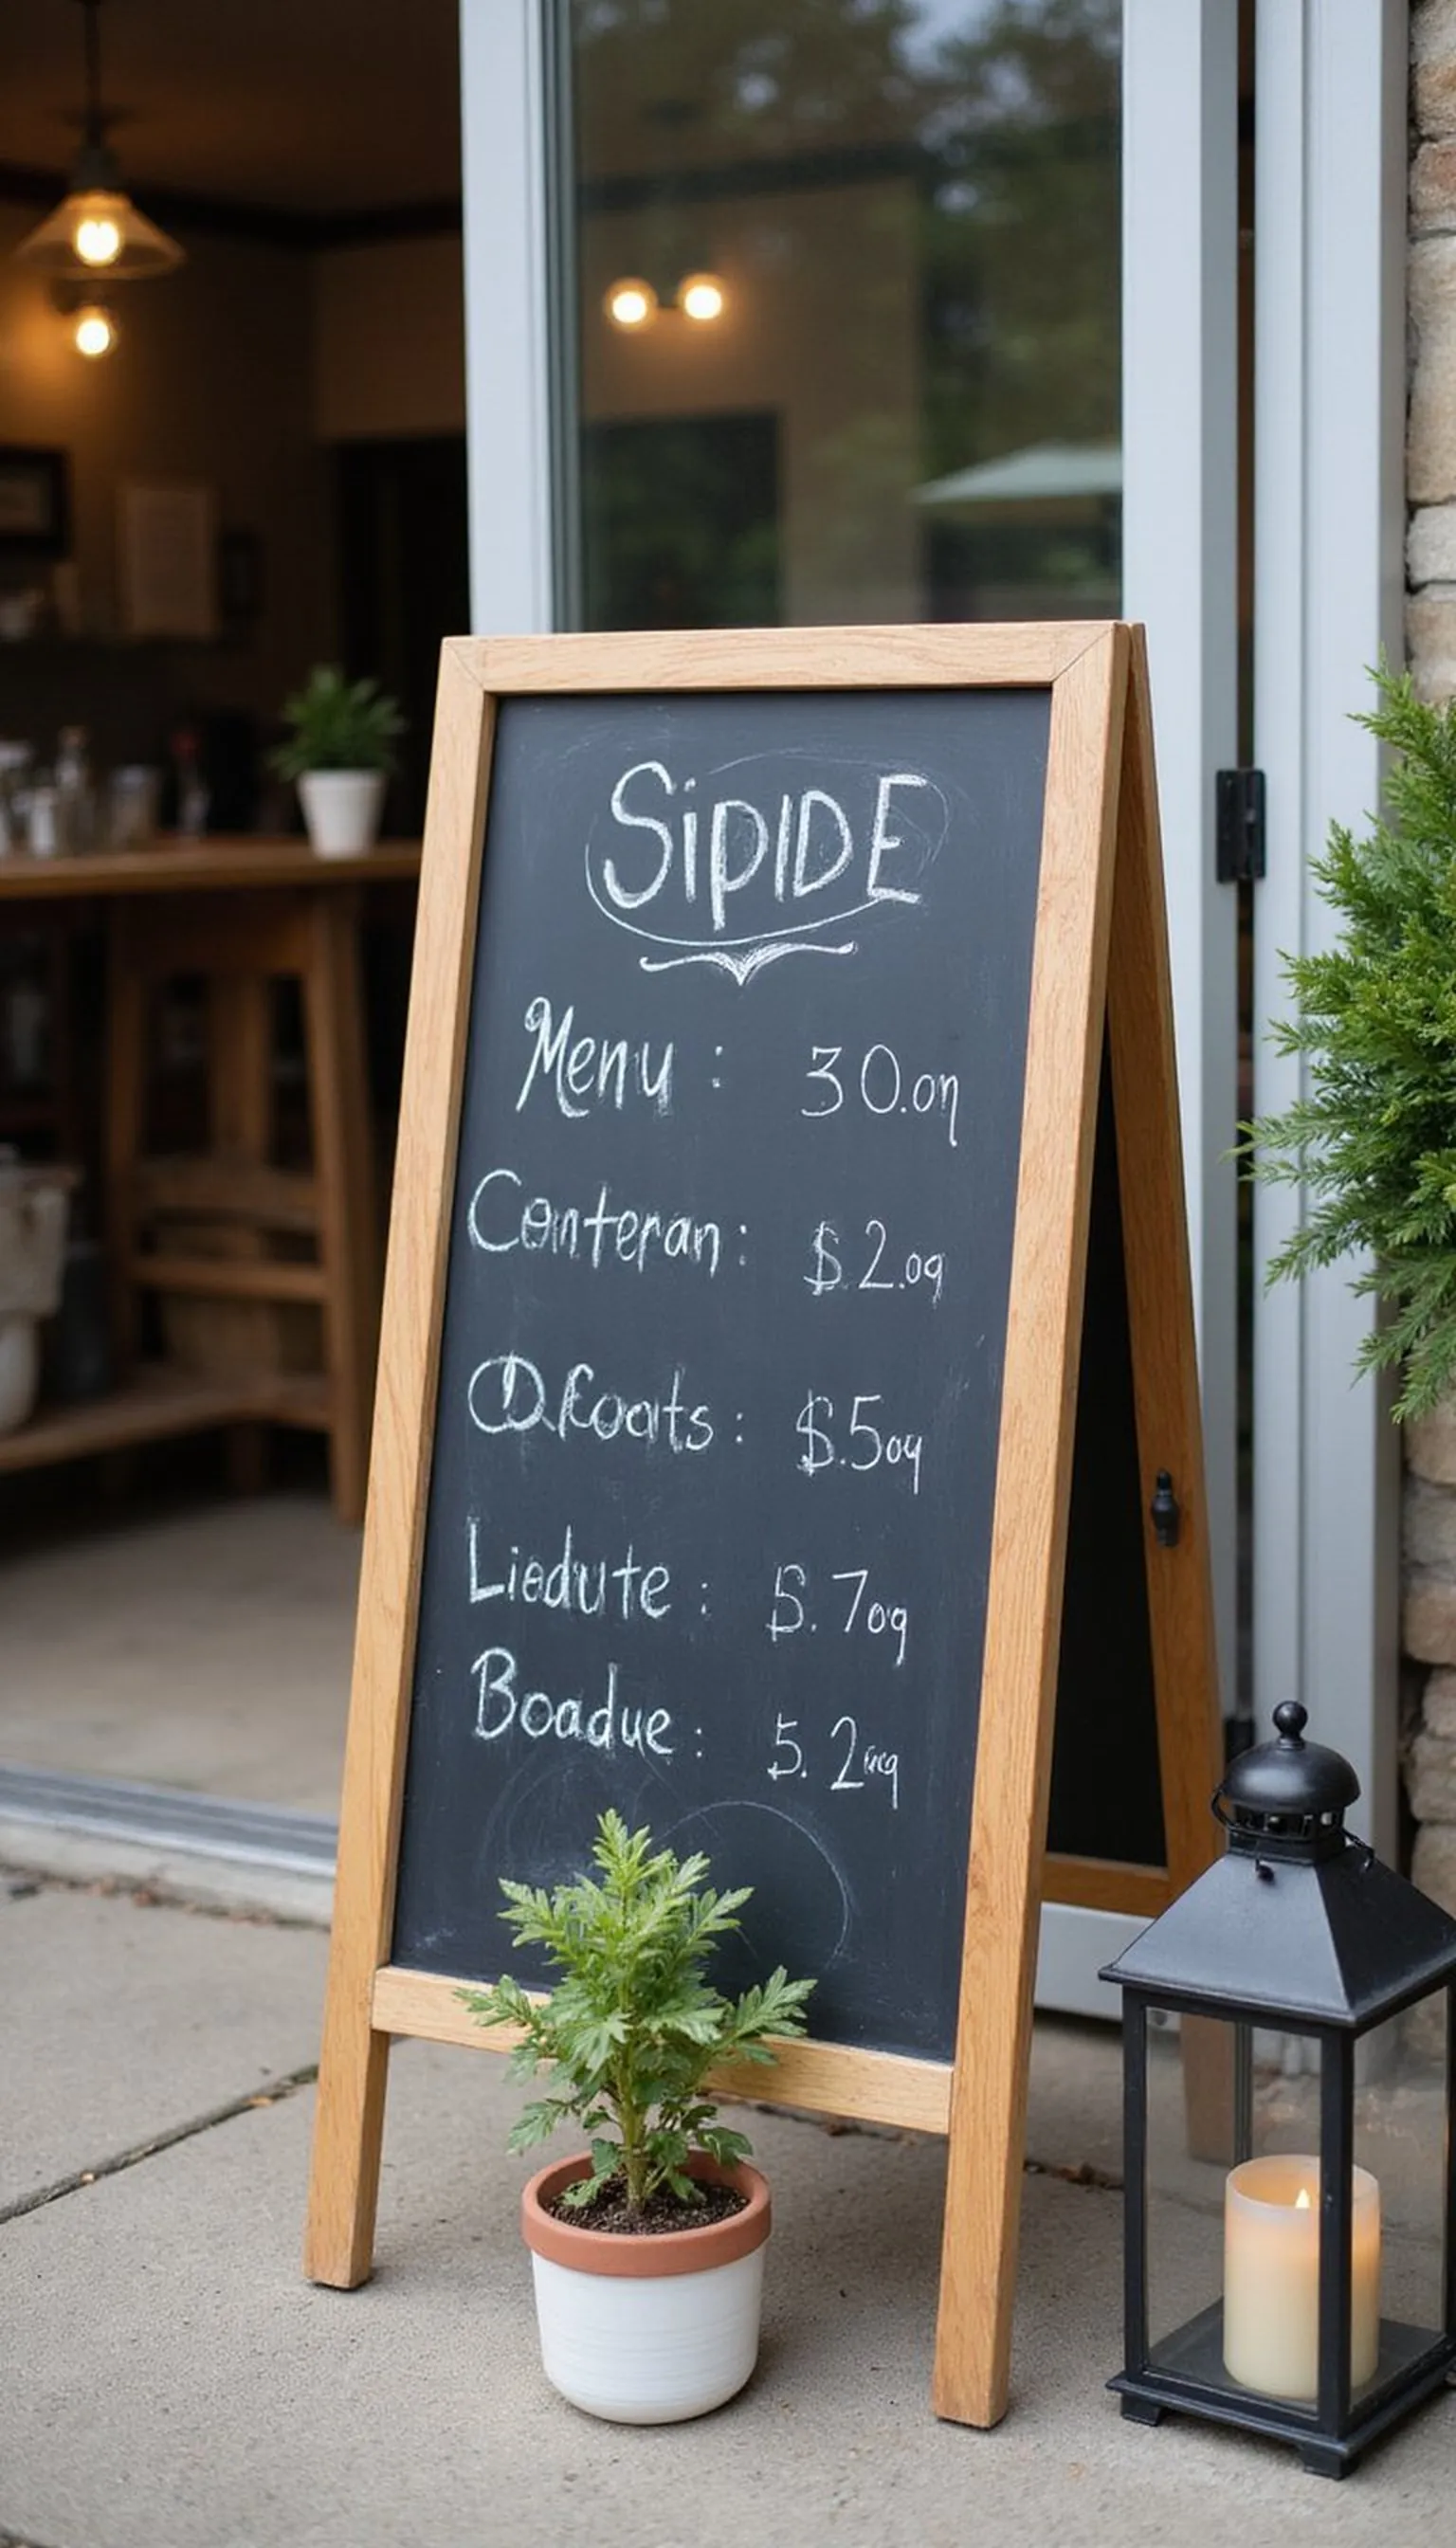 SipIDE
Menu : 30.on
Conteran : $2.09
Liedute : 5. 709
Boadue : 5. 2